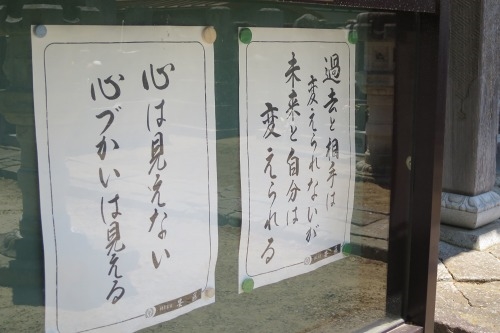 過去と相手は
変えられないが
未来と自分は
変えられる
心は見えない
心づかいは見える